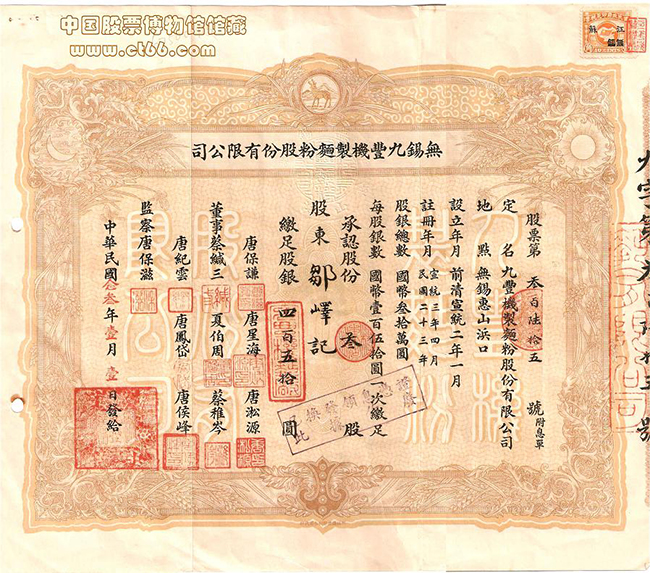 中国股票博物馆馆藏
www.ct66.com
無錫九豐機製麵粉股份有限公司
股票第 叁百陸拾五 號 附息單
定名 九豐機製麵粉股份有限公司
地點 無錫惠山浜口
設立年月 前清宣統二年一月
註冊年月 宣統三年四月
民國二十三年
股銀總數 國幣叁拾萬圓
每股銀數 國幣壹百伍拾圓一次繳足
承認股份 叁 股
股東 鄒嶧記
繳足股銀 四百五拾 圓
唐保謙 唐星海 唐淞源
董事 蔡緘三 夏伯周 蔡稚岑
唐紀雲 唐鳳岱 唐侯峰
監察 唐保滋
中華民國 叁年壹月壹日發給